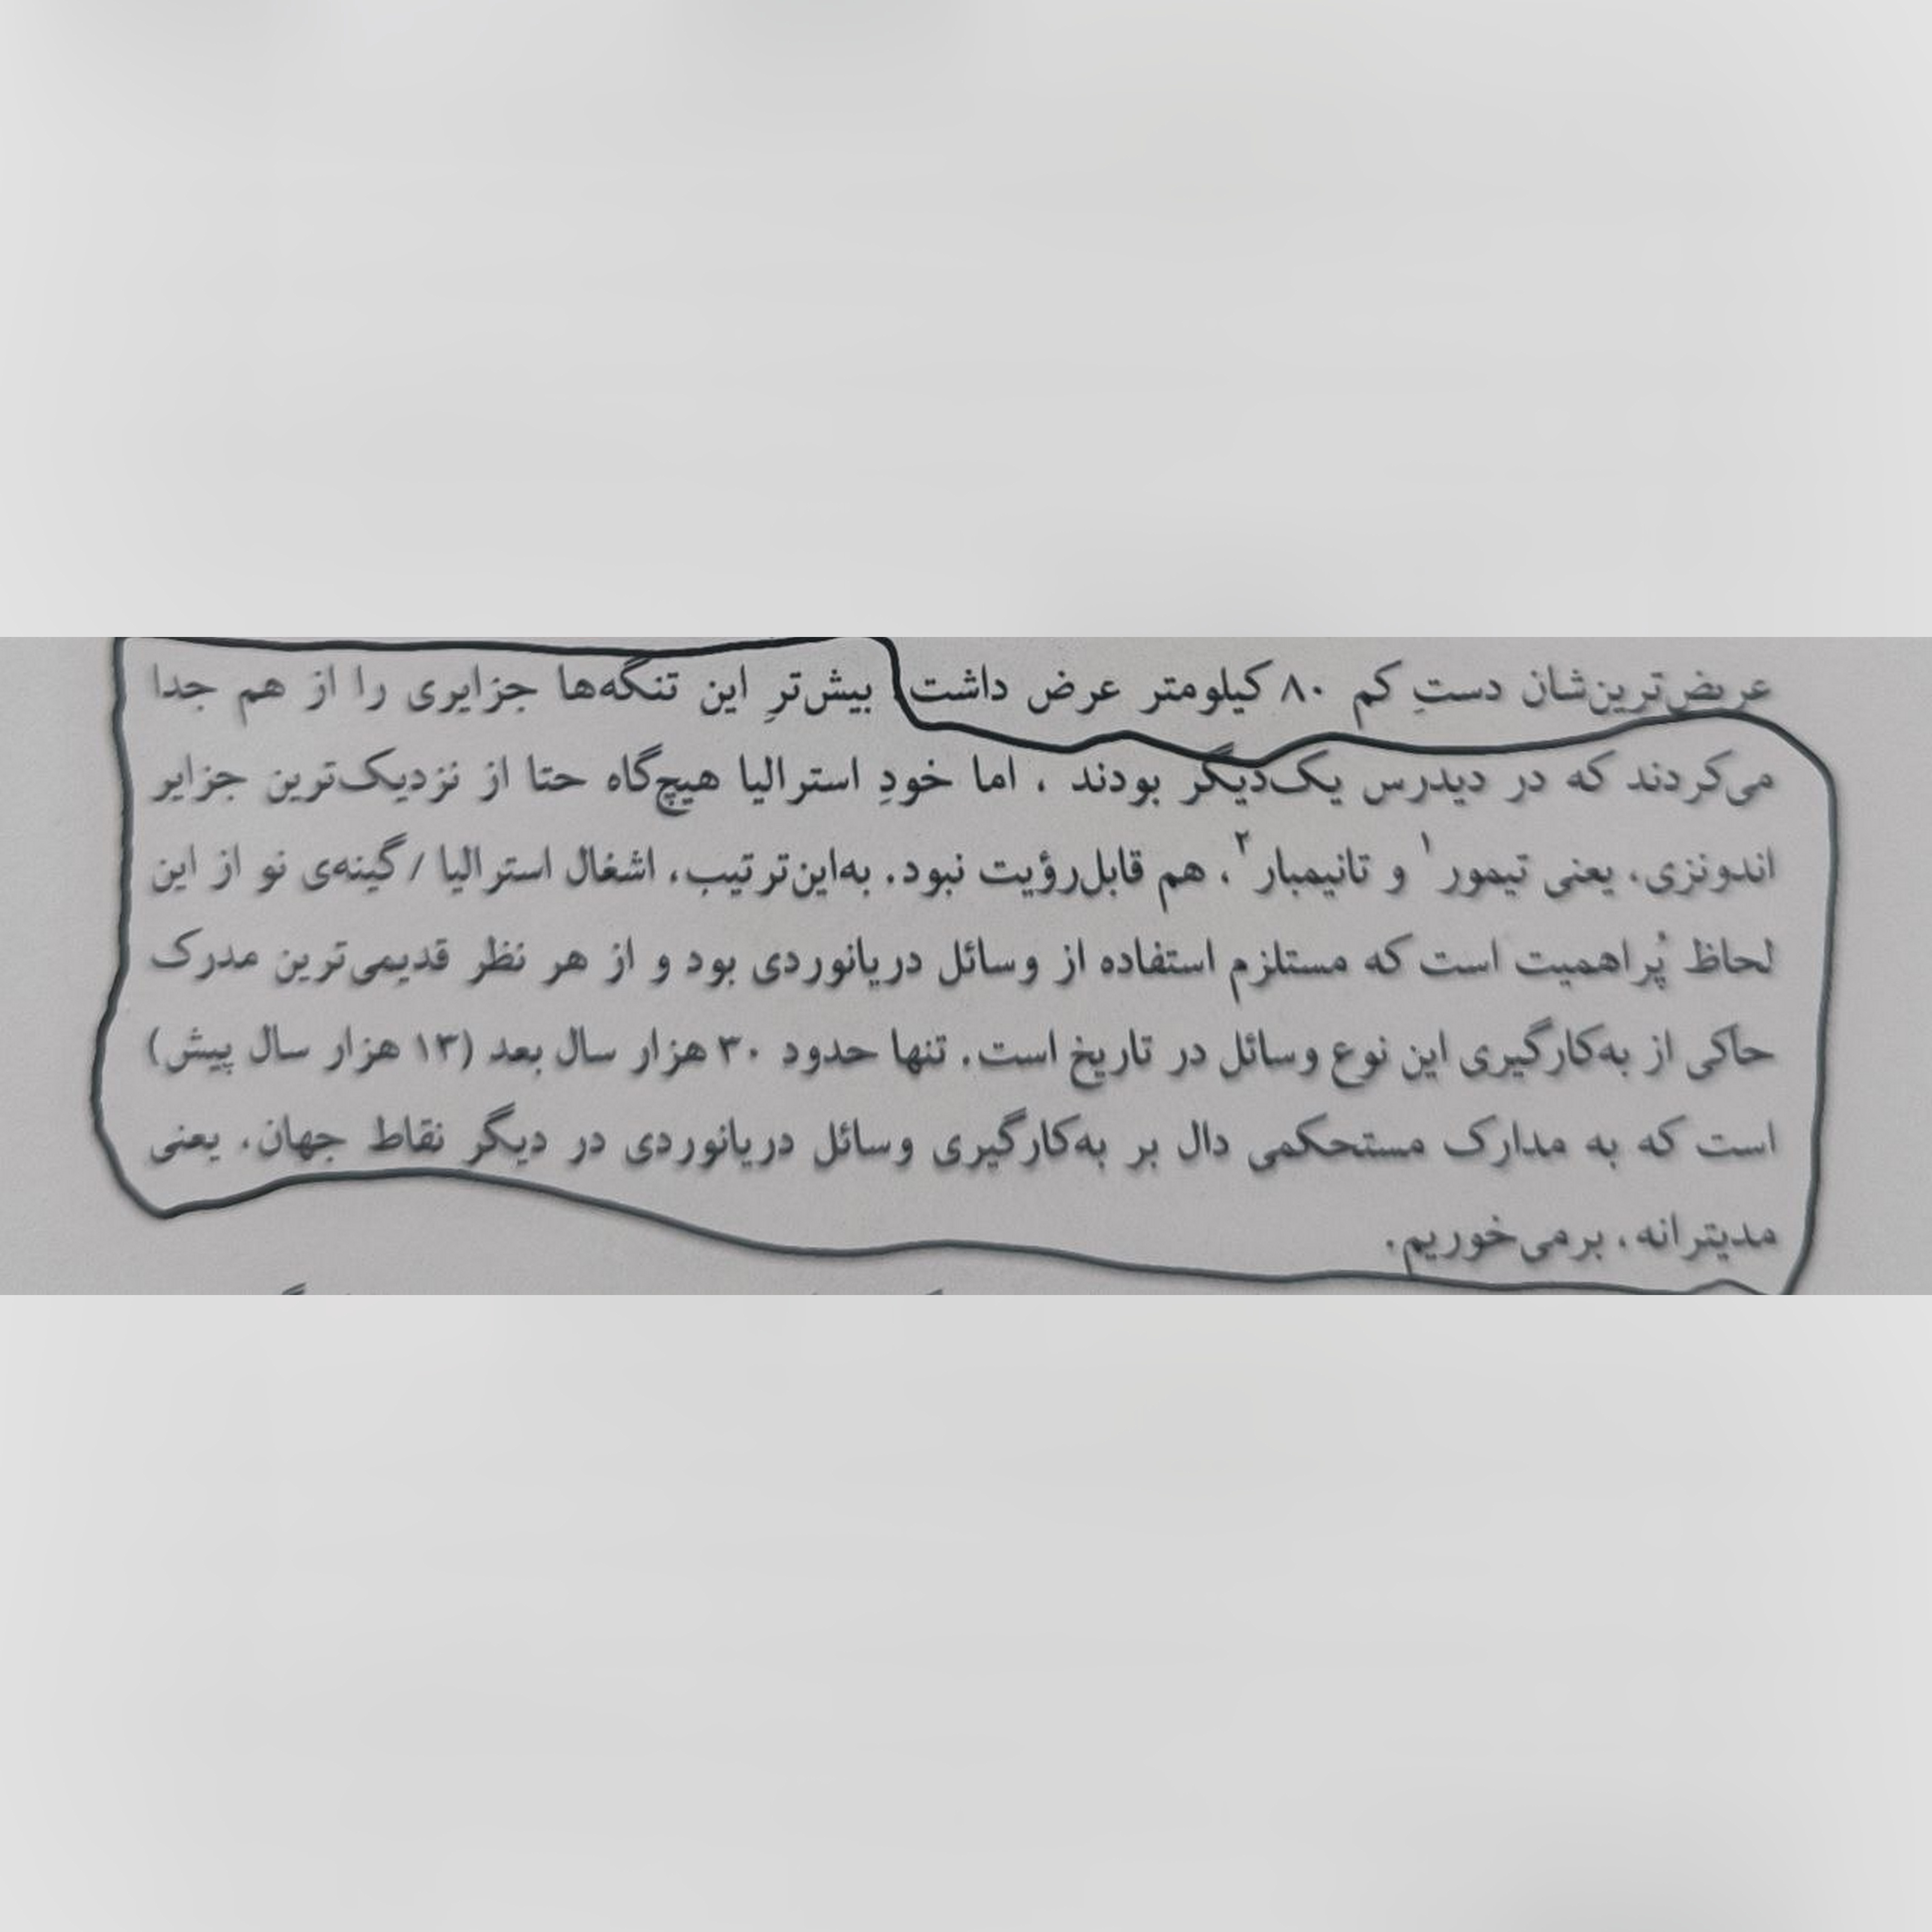 عریض‌ترین‌شان دستِ کم ۸۰ کیلومتر عرض داشت بیش‌ترِ این تنگه‌ها جزایری را از هم جدا
می‌کردند که در دیدرس یک‌دیگر بودند ، اما خودِ استرالیا هیچ‌گاه حتا از نزدیک‌ترین جزایر
اندونزی، یعنی تیمور۱ و تانیمبار۲، هم قابل‌رؤیت نبود. به‌این‌ترتیب، اشغال استرالیا /گینه‌ی نو از این
لحاظ پُراهمیت است که مستلزم استفاده از وسائل دریانوردی بود و از هر نظر قدیمی‌ترین مدرک
حاکی از به‌کارگیری این نوع وسائل در تاریخ است. تنها حدود ۳۰ هزار سال بعد (۱۳ هزار سال پیش)
است که به مدارک مستحکمی دال بر به‌کارگیری وسائل دریانوردی در دیگر نقاط جهان، یعنی
مدیترانه، برمی‌خوریم.